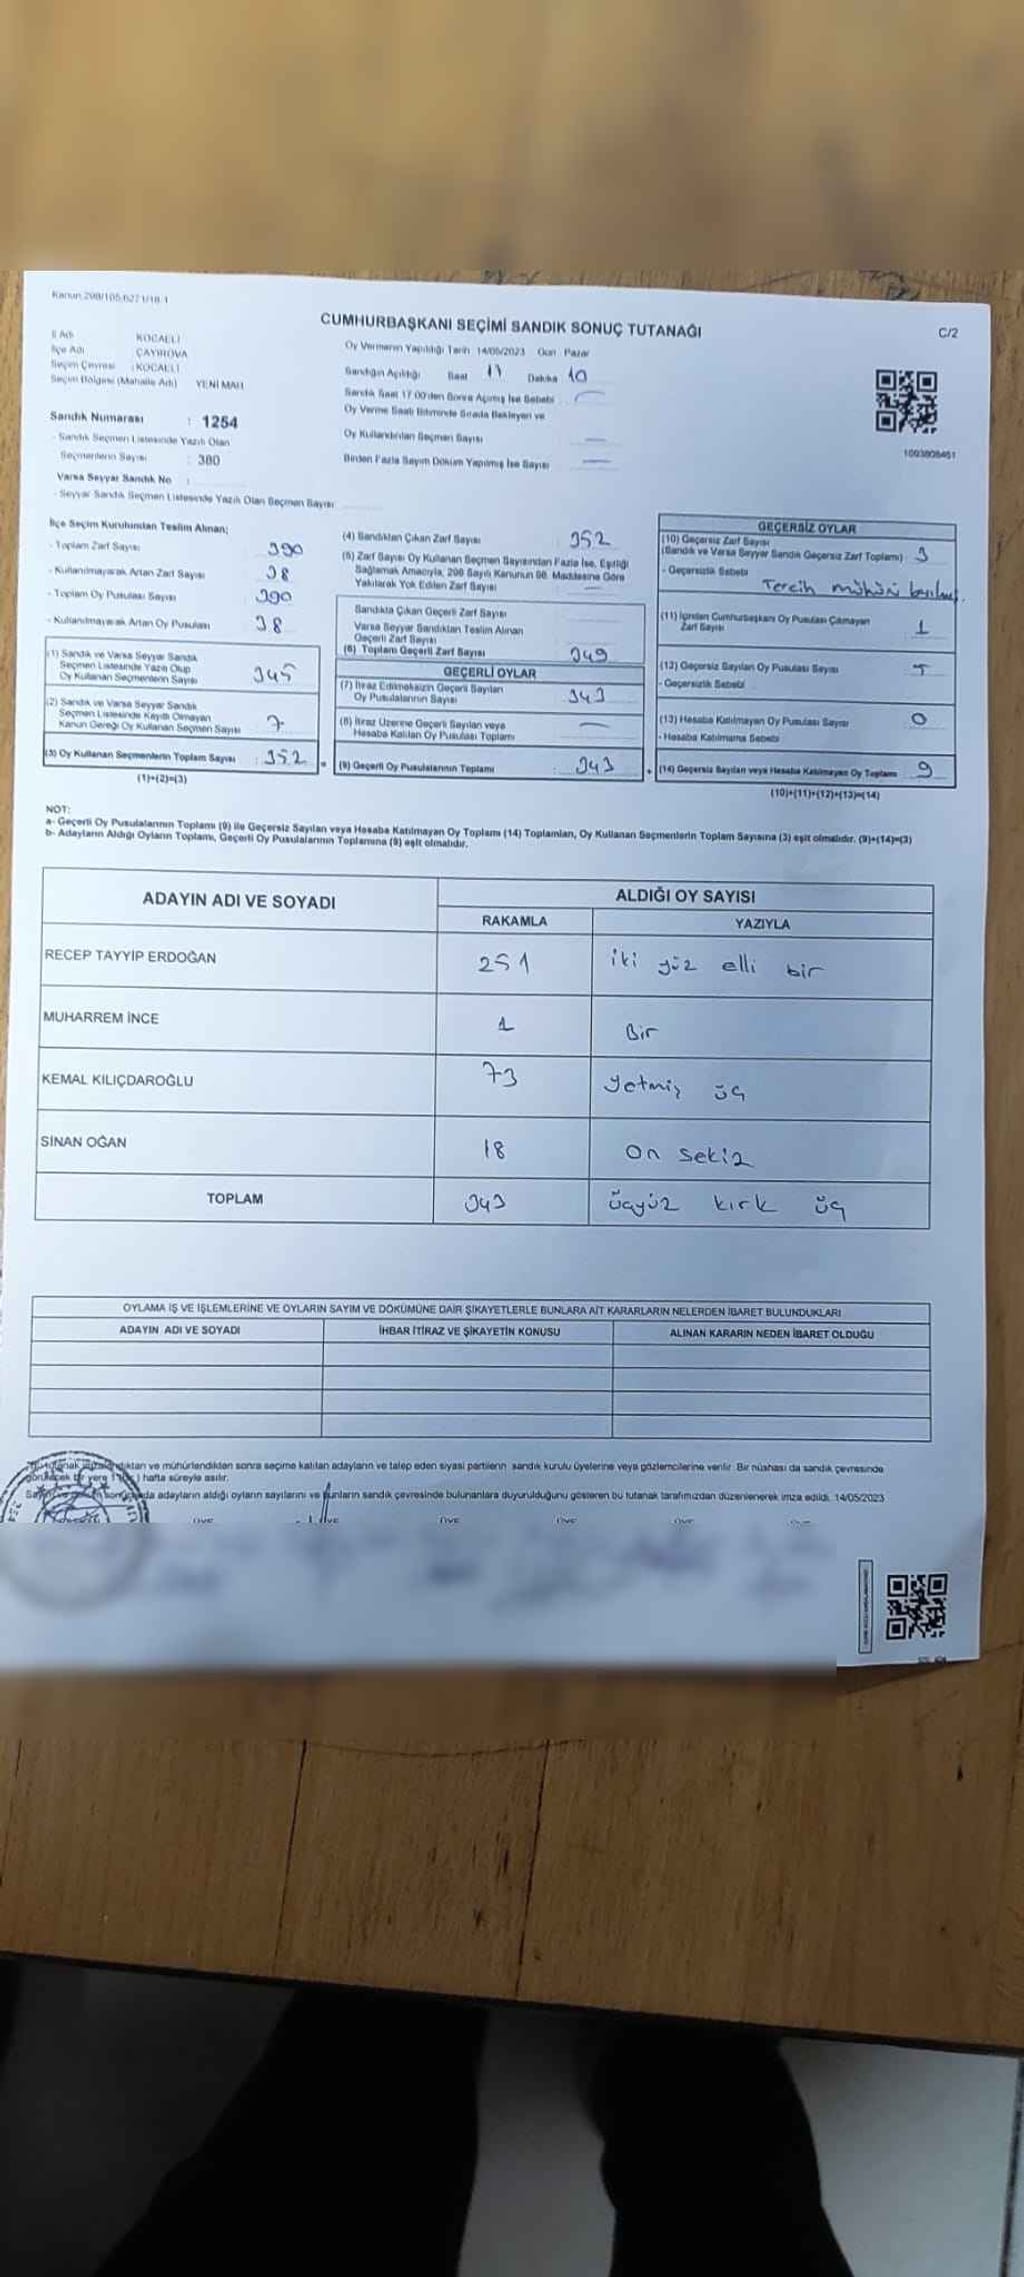 Kanun 298/105,6271/18-1
CUMHURBAŞKANI SEÇİMİ SANDIK SONUÇ TUTANAĞI
C/2
İl Adı KOCAELİ
İlçe Adı ÇAYIROVA
Seçim Çevresi : KOCAELİ
Seçim Bölgesi (Mahalle Adı) YENİ MAH
Oy Vermenin Yapıldığı Tarih 14/05/2023 Gün Pazar
Sandığın Açıldığı Saat 17 Dakika 10
Sandık Saat 17:00'den Sonra Açılmış İse Sebebi
Oy Verme Saati Bitiminde Sırada Bekleyen ve
Oy Kullandırılan Seçmen Sayısı
Birden Fazla Sayım Döküm Yapılmış İse Sayısı
1003808461
Sandık Numarası : 1254
- Sandık Seçmen Listesinde Yazılı Olan
Seçmenlerin Sayısı : 380
Varsa Seyyar Sandık No :
- Seyyar Sandık Seçmen Listesinde Yazılı Olan Seçmen Sayısı
İlçe Seçim Kurulundan Teslim Alınan;
- Toplam Zarf Sayısı 390
- Kullanılmayarak Artan Zarf Sayısı 38
- Toplam Oy Pusulası Sayısı 390
- Kullanılmayarak Artan Oy Pusulası 38
(1) Sandık ve Varsa Seyyar Sandık
Seçmen Listesinde Yazılı Olup
Oy Kullanan Seçmenlerin Sayısı 345
(2) Sandık ve Varsa Seyyar Sandık
Seçmen Listesinde Kayıtlı Olmayan
Kanun Gereği Oy Kullanan Seçmen Sayısı 7
(3) Oy Kullanan Seçmenlerin Toplam Sayısı : 352
(1)+(2)=(3)
(4) Sandıktan Çıkan Zarf Sayısı 352
(5) Zarf Sayısı Oy Kullanan Seçmen Sayısından Fazla İse, Eşitliği
Sağlamak Amacıyla, 298 Sayılı Kanunun 98. Maddesine Göre
Yakılarak Yok Edilen Zarf Sayısı
Sandıkta Çıkan Geçerli Zarf Sayısı
Varsa Seyyar Sandıktan Teslim Alınan
Geçerli Zarf Sayısı
(6) Toplam Geçerli Zarf Sayısı 349
GEÇERLİ OYLAR
(7) İtiraz Edilmeksizin Geçerli Sayılan
Oy Pusulalarının Sayısı 343
(8) İtiraz Üzerine Geçerli Sayılan veya
Hesaba Katılan Oy Pusulası Toplamı
(9) Geçerli Oy Pusulalarının Toplamı : 343
GEÇERSİZ OYLAR
(10) Geçersiz Zarf Sayısı
(Sandık ve Varsa Seyyar Sandık Geçersiz Zarf Toplamı) 3
- Geçersizlik Sebebi
Tercih mühürü basılmış.
(11) İçinden Cumhurbaşkanı Oy Pusulası Çıkmayan
Zarf Sayısı 1
(12) Geçersiz Sayılan Oy Pusulası Sayısı 5
- Geçersizlik Sebebi
(13) Hesaba Katılmayan Oy Pusulası Sayısı 0
- Hesaba Katılmama Sebebi
(14) Geçersiz Sayılan veya Hesaba Katılmayan Oy Toplamı 9
(10)+(11)+(12)+(13)=(14)
NOT:
a- Geçerli Oy Pusulalarının Toplamı (9) ile Geçersiz Sayılan veya Hesaba Katılmayan Oy Toplamı (14) Toplamları, Oy Kullanan Seçmenlerin Toplam Sayısına (3) eşit olmalıdır. (9)+(14)=(3)
b- Adayların Aldığı Oyların Toplamı, Geçerli Oy Pusulalarının Toplamına (9) eşit olmalıdır.
ADAYIN ADI VE SOYADI ALDIĞI OY SAYISI
RAKAMLA YAZIYLA
RECEP TAYYİP ERDOĞAN 251 iki yüz elli bir
MUHARREM İNCE 1 Bir
KEMAL KILIÇDAROĞLU 73 yetmiş üç
SİNAN OĞAN 18 On sekiz
TOPLAM 343 üçyüz kırk üç
OYLAMA İŞ VE İŞLEMLERİNE VE OYLARIN SAYIM VE DÖKÜMÜNE DAİR ŞİKAYETLERLE BUNLARA AİT KARARLARIN NELERDEN İBARET BULUNDUKLARI
ADAYIN ADI VE SOYADI İHBAR İTİRAZ VE ŞİKAYETİN KONUSU ALINAN KARARIN NEDEN İBARET OLDUĞU
ve mühürlendikten sonra seçime katılan adayların ve talep eden siyasi partilerin sandık kurulu üyelerine veya gözlemcilerine verilir. Bir nüshası da sandık çevresinde
görülecek bir yere 1 hafta süreyle asılır.
adayların aldığı oyların sayılarını ve bunların sandık çevresinde bulunanlara duyurulduğunu gösteren bu tutanak tarafımızdan düzenlenerek imza edildi. 14/05/2023